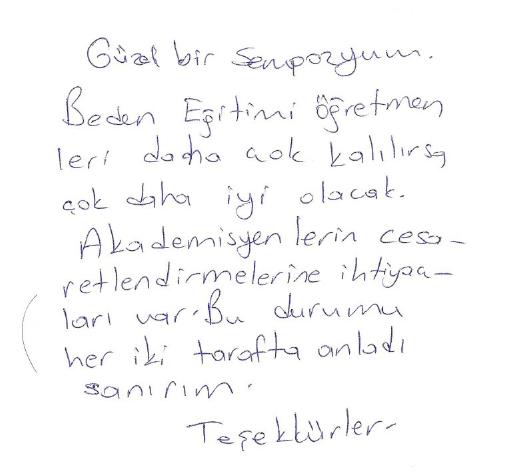 Güzel bir Sempozyum.
Beden Eğitimi öğretmen
leri daha çok kalılırsa
çok daha iyi olacak.
Akademisyenlerin cesa-
retlendirmelerine ihtiyaç-
ları var. Bu durumu
her iki tarafta anladı
sanırım.
Teşekkürler-